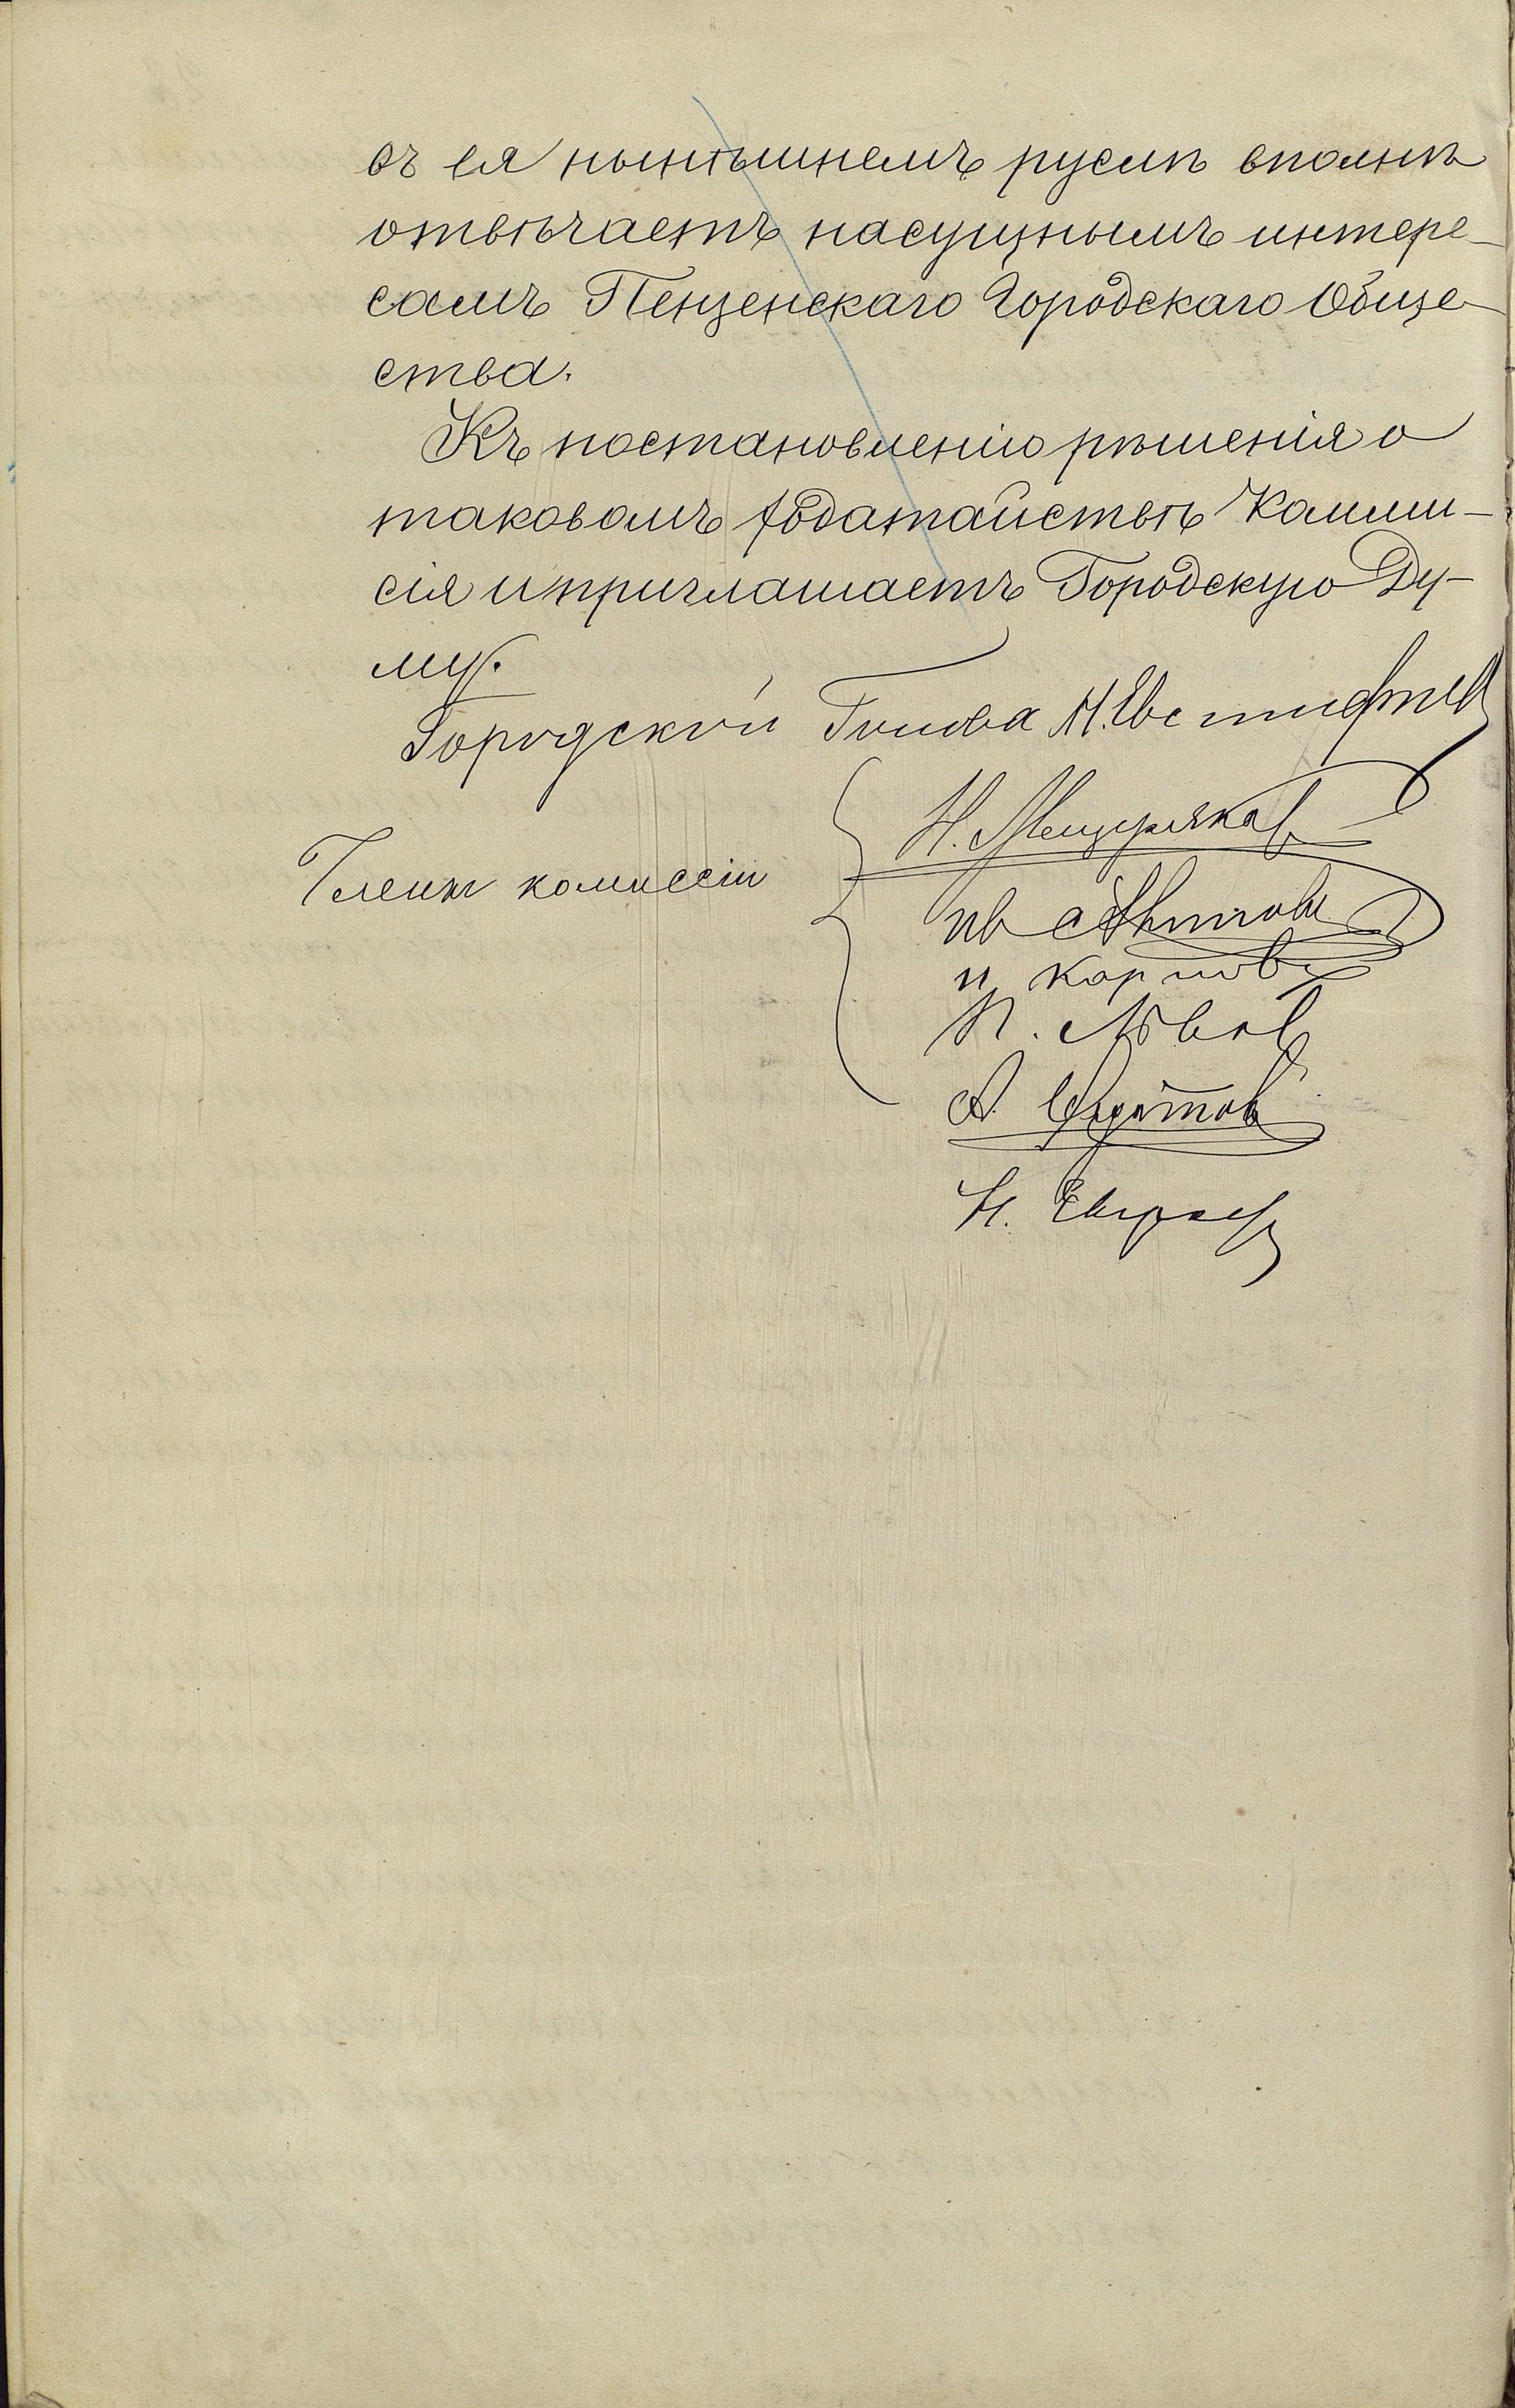 въ ея нынѣшнемъ руслѣ вполнѣ
отвѣчаетъ насущнымъ интере-
самъ Пензенскаго Городскаго Обще-
ства.
Къ постановленію рѣшенія о
таковомъ ходатайствѣ Комми-
сія и приглашаетъ Городскую Ду-
му.
Городской Голова Н. Евстифѣев
Н. Мещеряков
Члены комиссіи
Ив Антонов
И Карповъ
П. Львов
А.
Н.